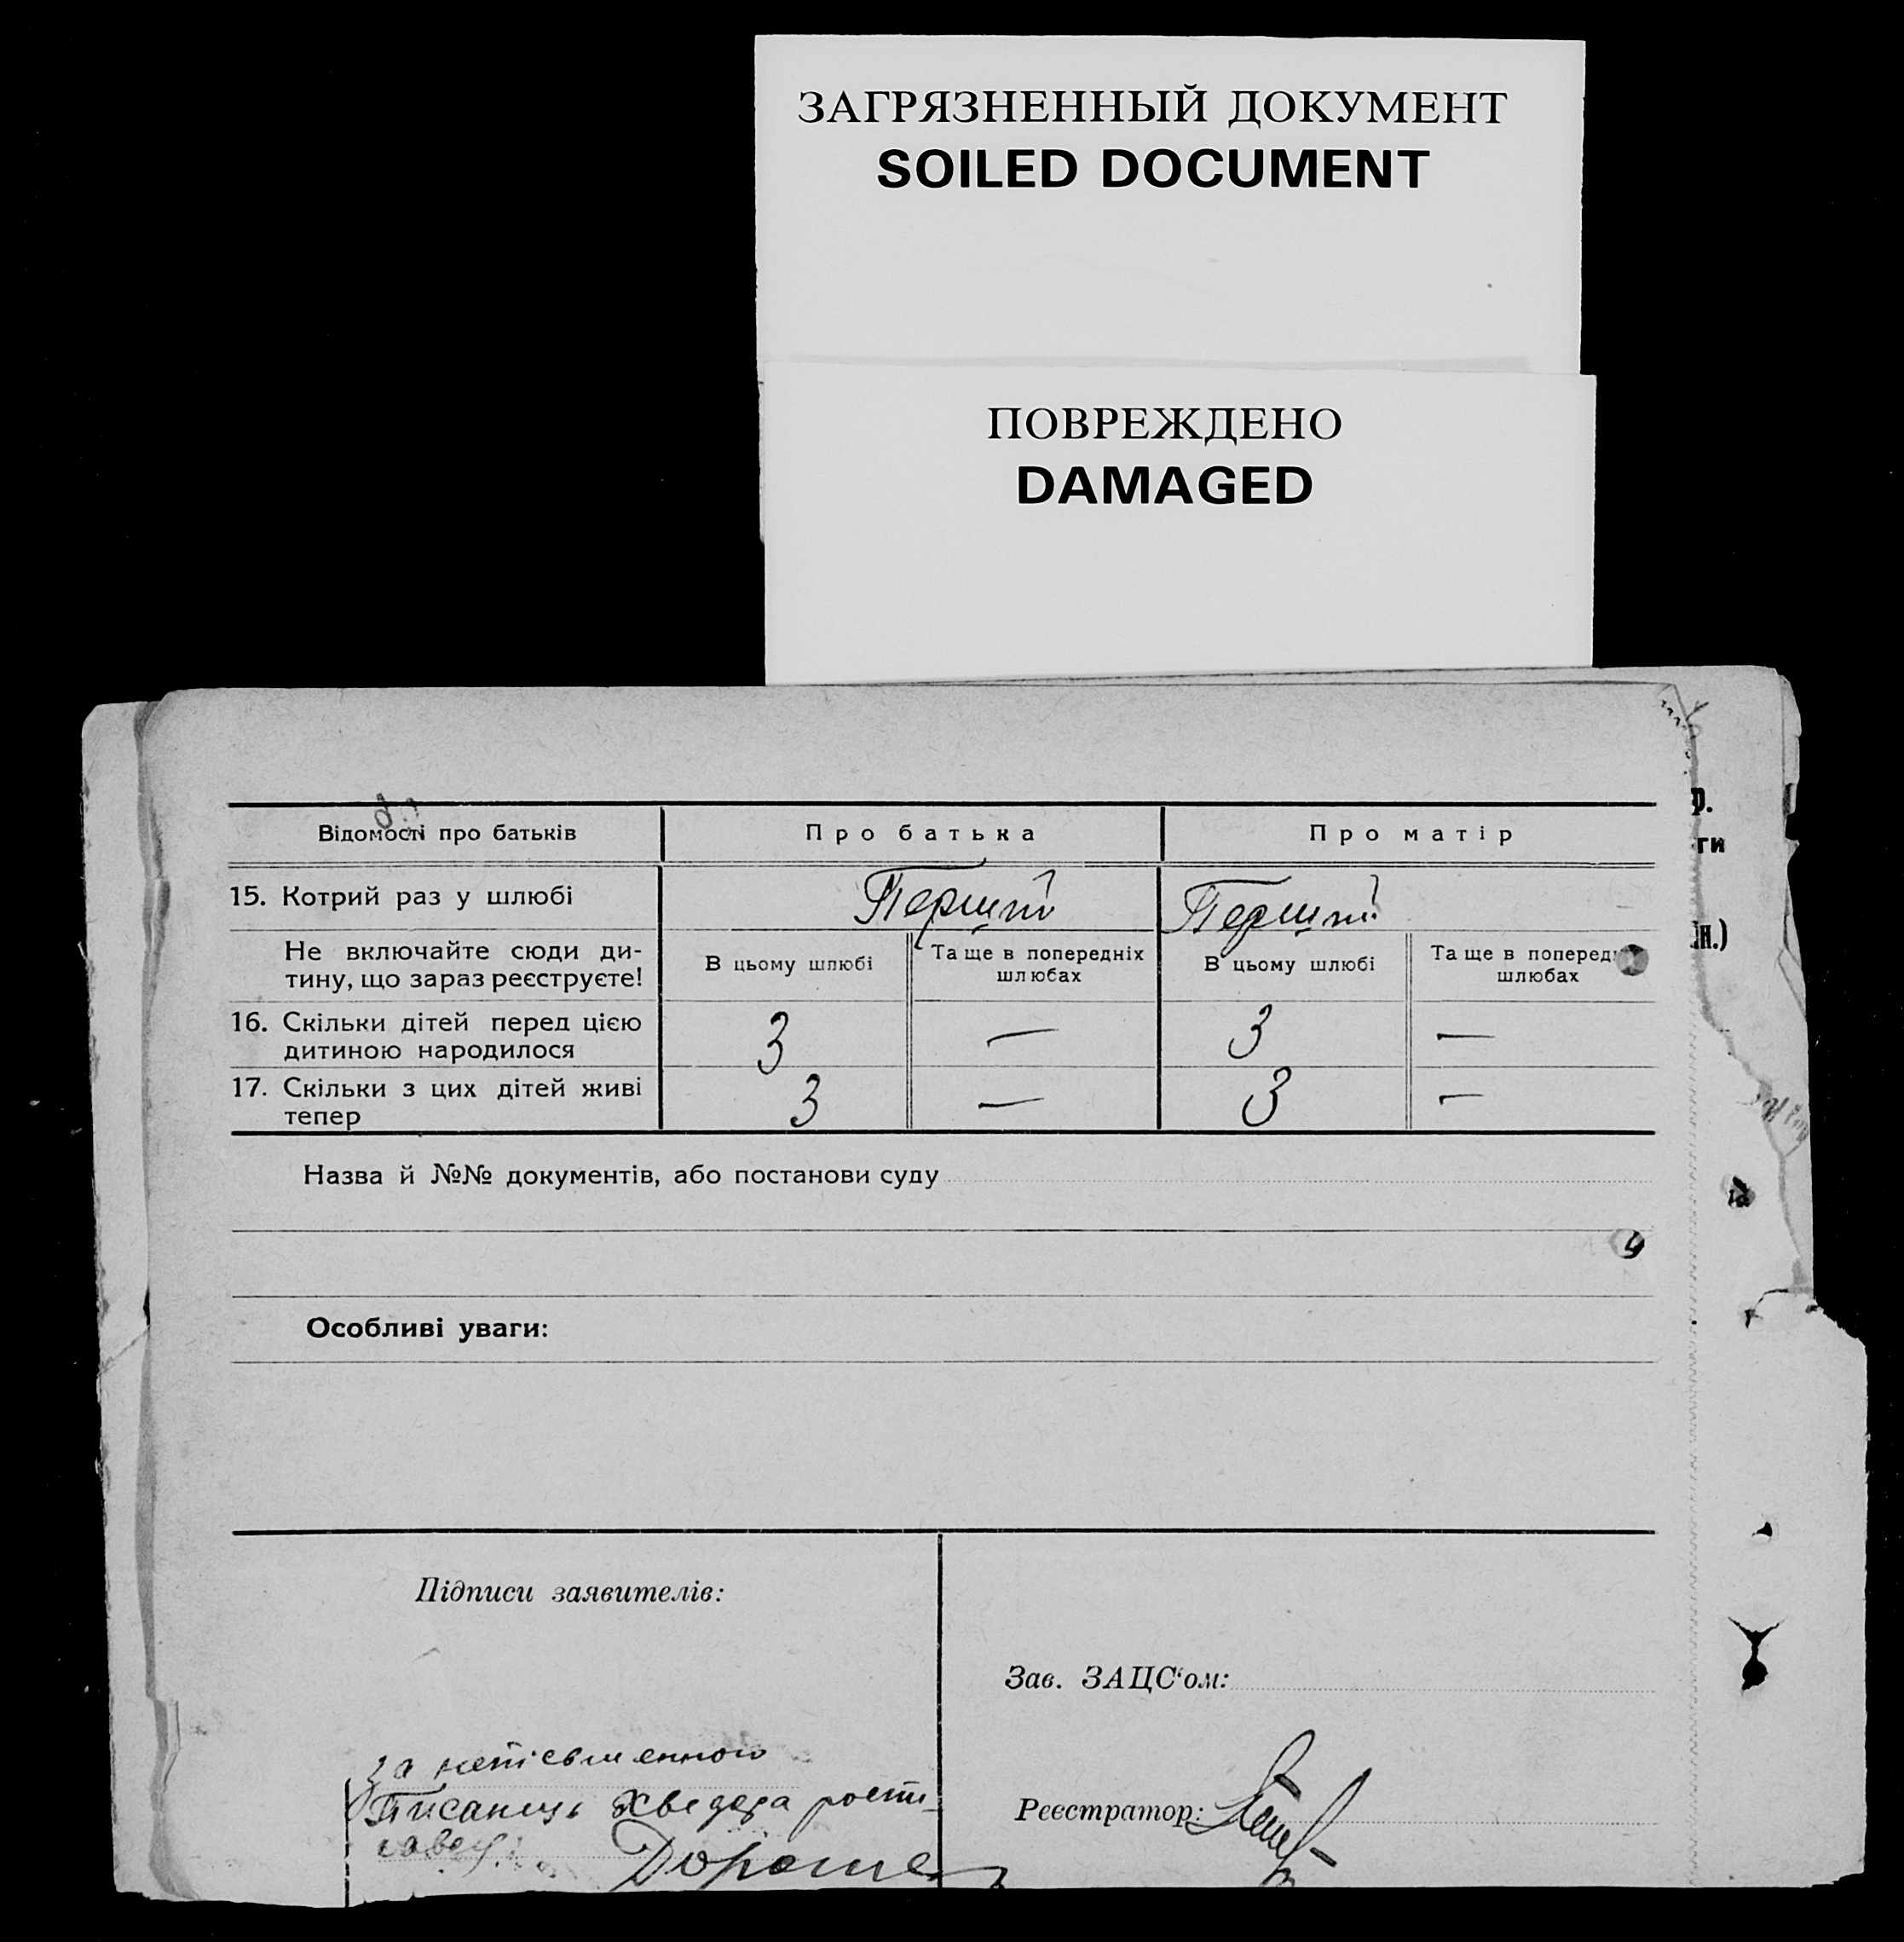 ЗАГРЯЗНЕННЫЙ ДОКУМЕНТ
SOILED DOCUMENT
ПОВРЕЖДЕНО
DAMAGED
Відомості про батьків
Про батька
Про матір
15. Котрий раз у шлюбі
Перший
Перший
Не включайте сюди ди-
тину, що зараз реєструєте!
В цьому шлюбі
Та ще в попередніх
шлюбах
В цьому шлюбі
Та ще в поперед
шлюбах
16. Скільки дітей перед цією
дитиною народилося
3
—
3
—
17. Скільки з цих дітей живі
тепер
3
—
3
—
Назва й №№ документів, або постанови суду
Особливі уваги:
Підписи заявителів:
Зав. ЗАЦС‘ом:
за неписьменного
Писанець Хведора
Реєстратор:
р.
ги
н.)